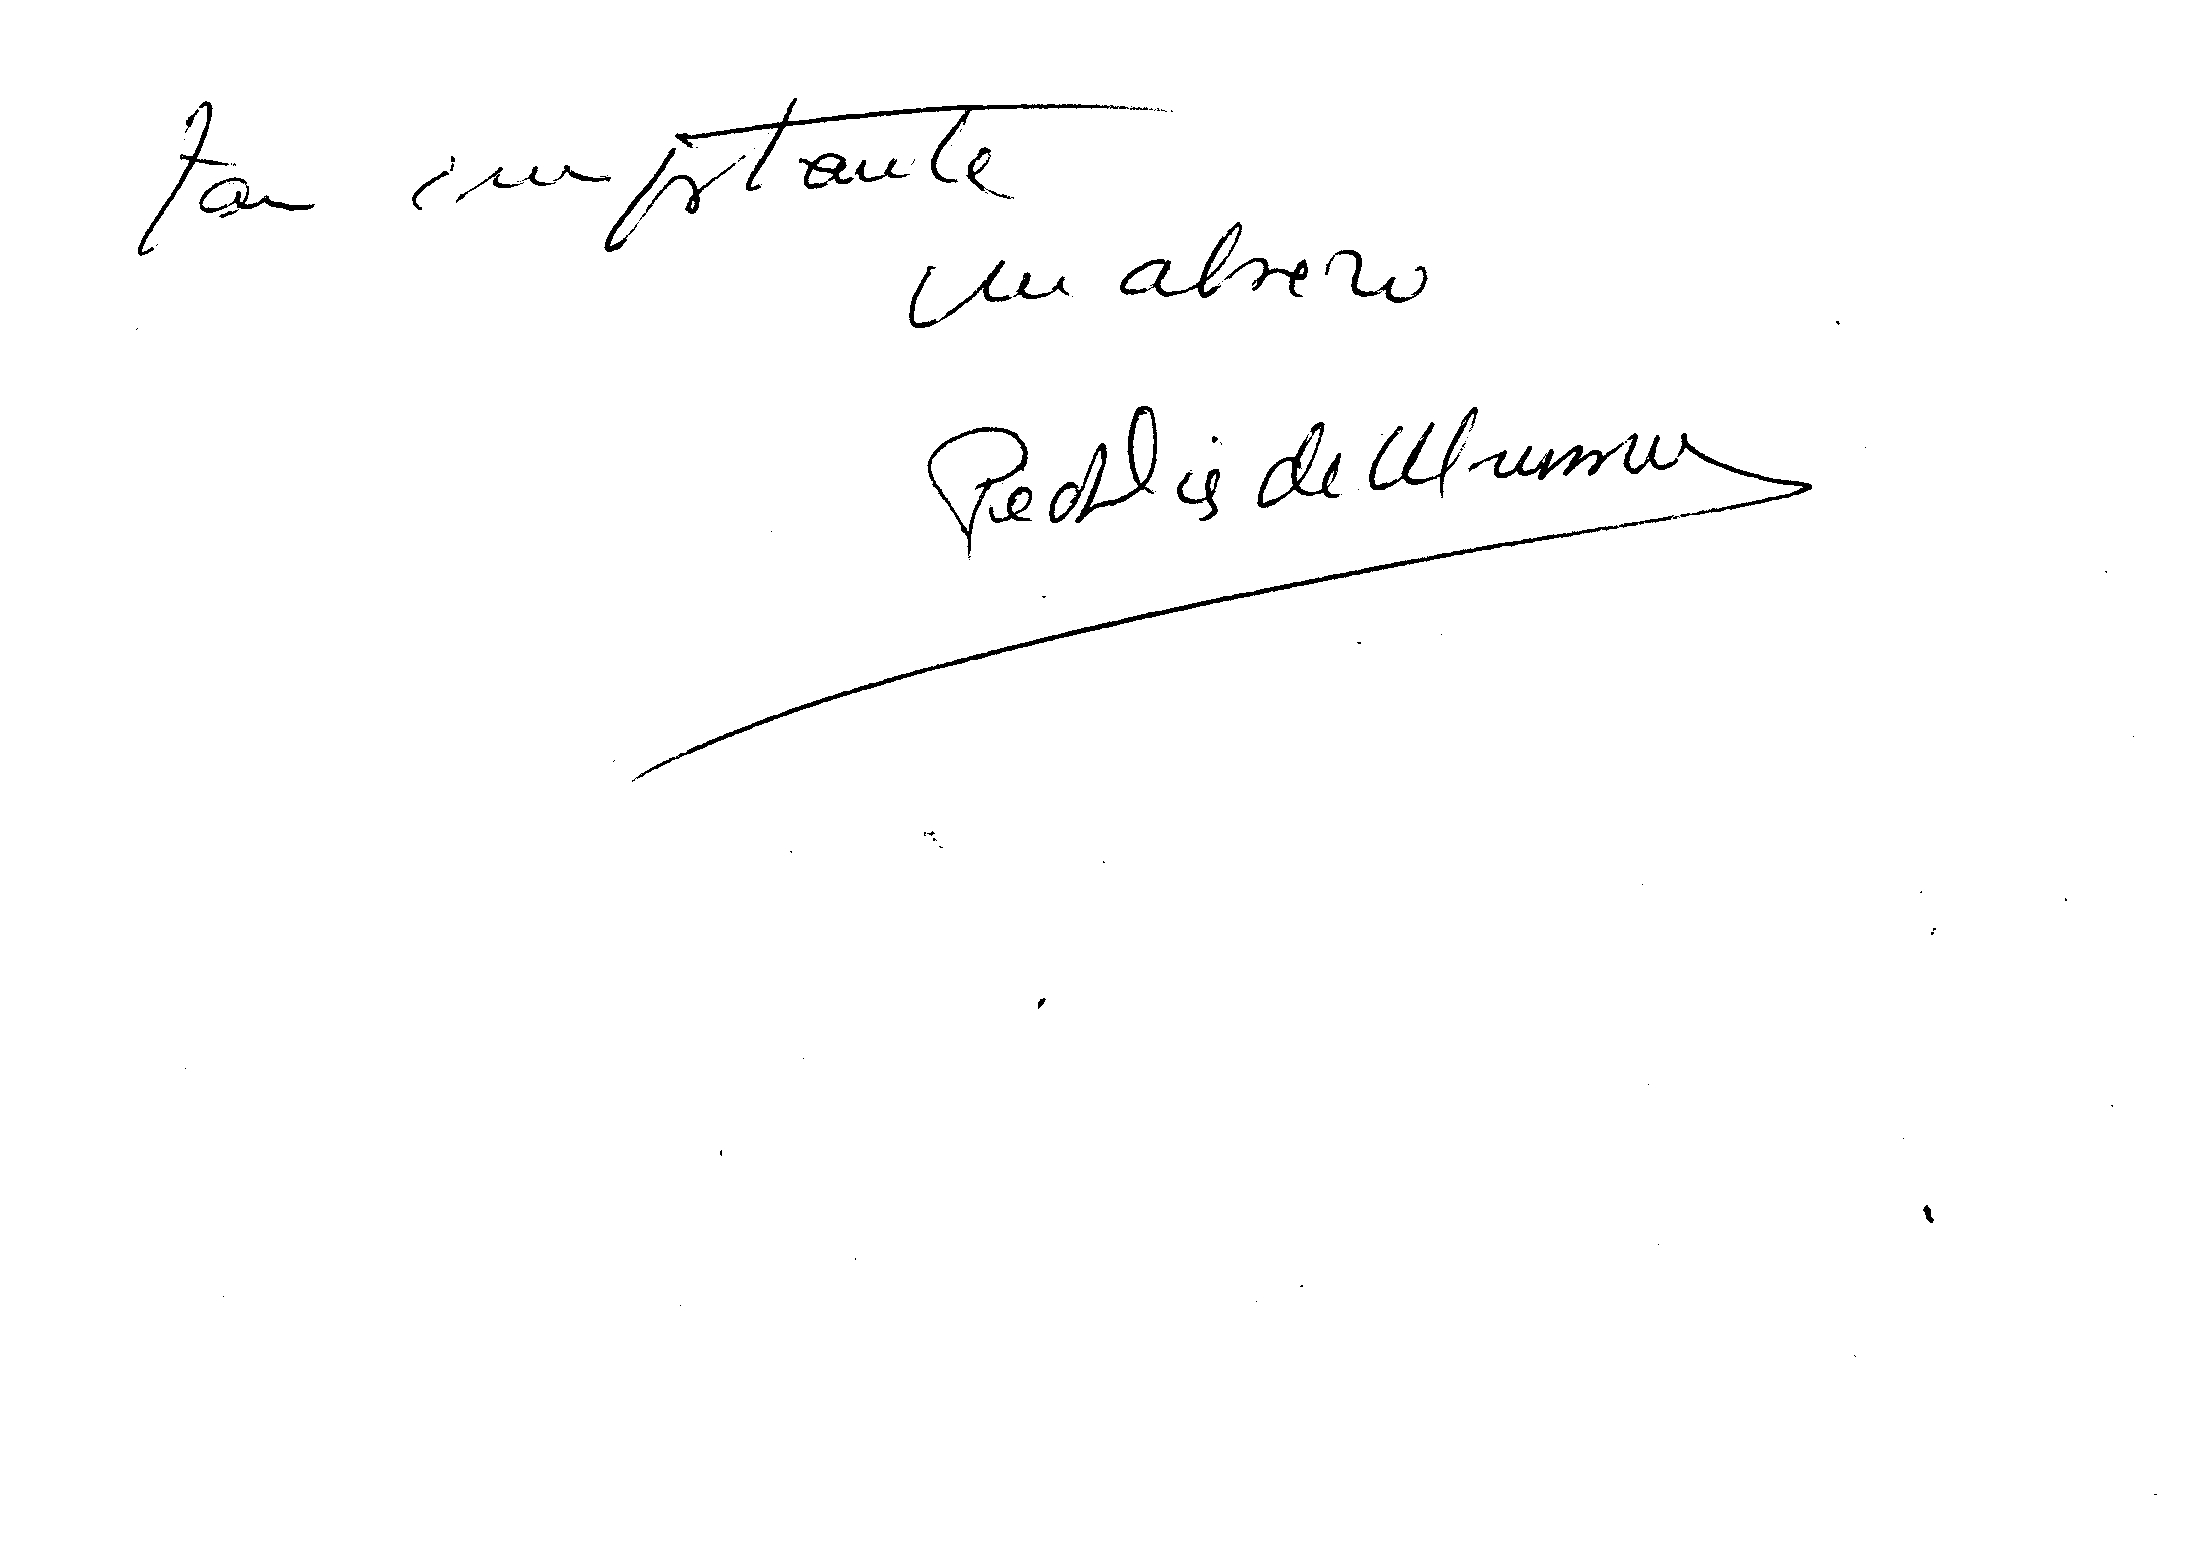 tan importante
un abrazo
Pedro Luis de Urrunuela